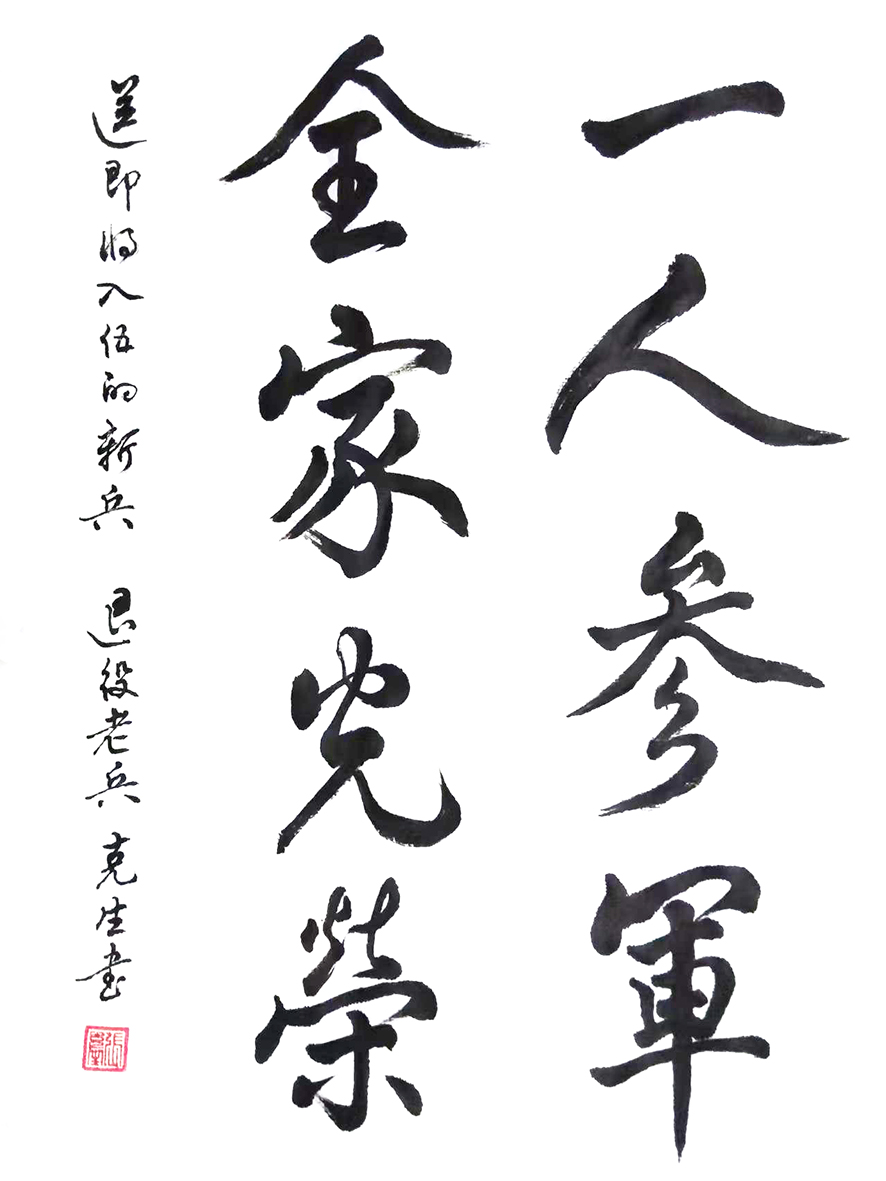 一人参軍
全家光榮
送即将入伍的新兵 退役老兵 克生書